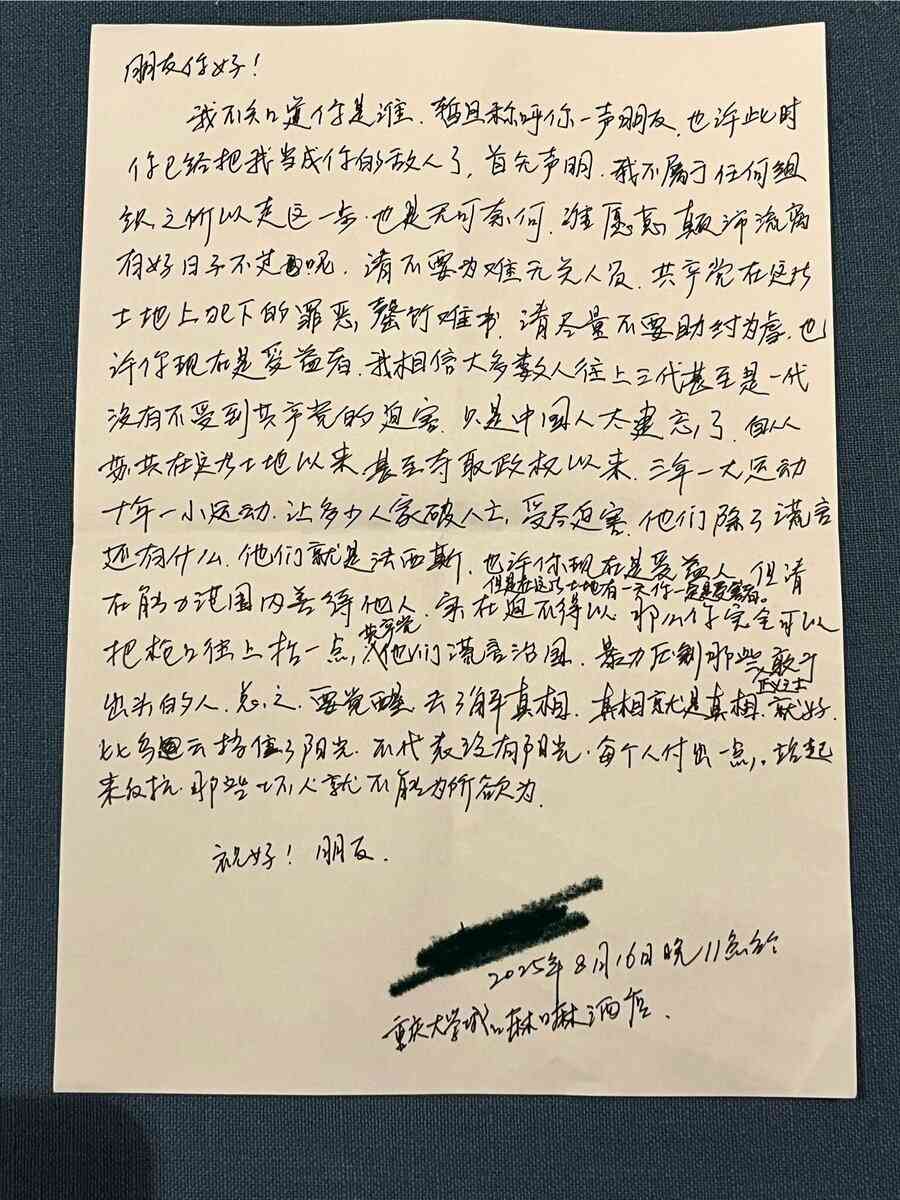 朋友你好!
我不知道你是谁.暂且称呼你一声朋友,也许此时
你已给把我当成你的敌人了,首先声明.我不属于任何组
织,之所以走这一步.也是无可奈何.谁愿意颠沛流离
有好日子不过呢.请不要为难无关人员.共产党在这片
土地上犯下的罪恶,罄竹难书.请尽量不要助纣为虐,也
许你现在是受益者.我相信大多数人往上三代甚至是一代
没有不受到共产党的迫害.只是中国人太建忘,了.自从
苏共在这片土地以来.甚至夺取政权以来.三年一大运动
十年一小运动.让多少人家破人亡,受尽迫害.他们除了谎言
还有什么.他们就是法西斯.也许你现在是受益人.但请
但是在这片土地有一天你一定是受害者。
在能力范围内善待他人.实在迫不得以.那么你完全可以
把枪口往上抬一点,共产党他们谎言治国.暴力压制那些敢于
出头的人义士.总之.要觉醒.去了解真相.真相就是真相.就好
比乌云挡住了阳光.不代表没有阳光.每个人付出一点,.站起
来反抗.那些坏人就不能为所欲为.
祝好!朋友.
2025年8月16日晚11点于
重庆大学城 酒店.